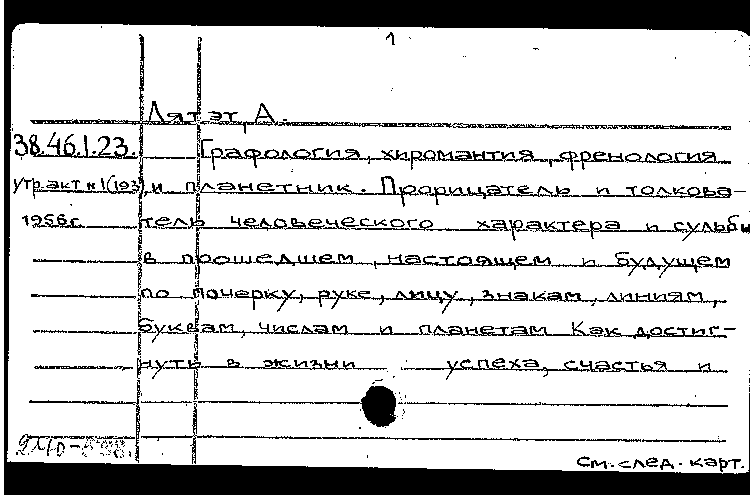 1
Лятэт, А.
38.46.1.23. Графология, хиромантия, френология
утр. акт н 1(193) и планетник. Прорицатель и толкова-
1956г. тель человеческого характера и судьбы
в прошедшем, настоящем и будущем
по почерку, руке, лицу, знакам, линиям,
буквам, числам и планетам Как достиг-
нуть в жизни успеха, счастья и
см. след. карт.